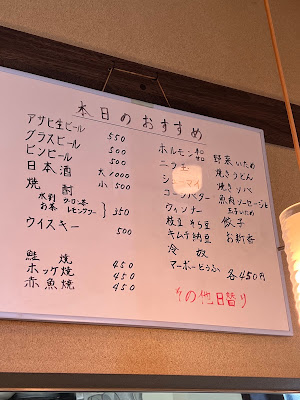 本日のおすすめ
アサヒ生ビール 550
グラスビール
ビンビール 500
日本酒 大1000
焼酎 小500
水割 ウーロン茶
お茶 レモンサワー } 350
ウイスキー 500
鮭焼 450
ホッケ焼 450
赤魚焼 450
ホルモン
ニラ玉
コーンバター
ウィンナー
枝豆 そら豆
キムチ納豆
冷奴
マーボーとうふ
野菜いため
焼きうどん
焼きソバ
魚肉ソーセージと
玉子いため
餃子
お新香
各450円
その他日替り